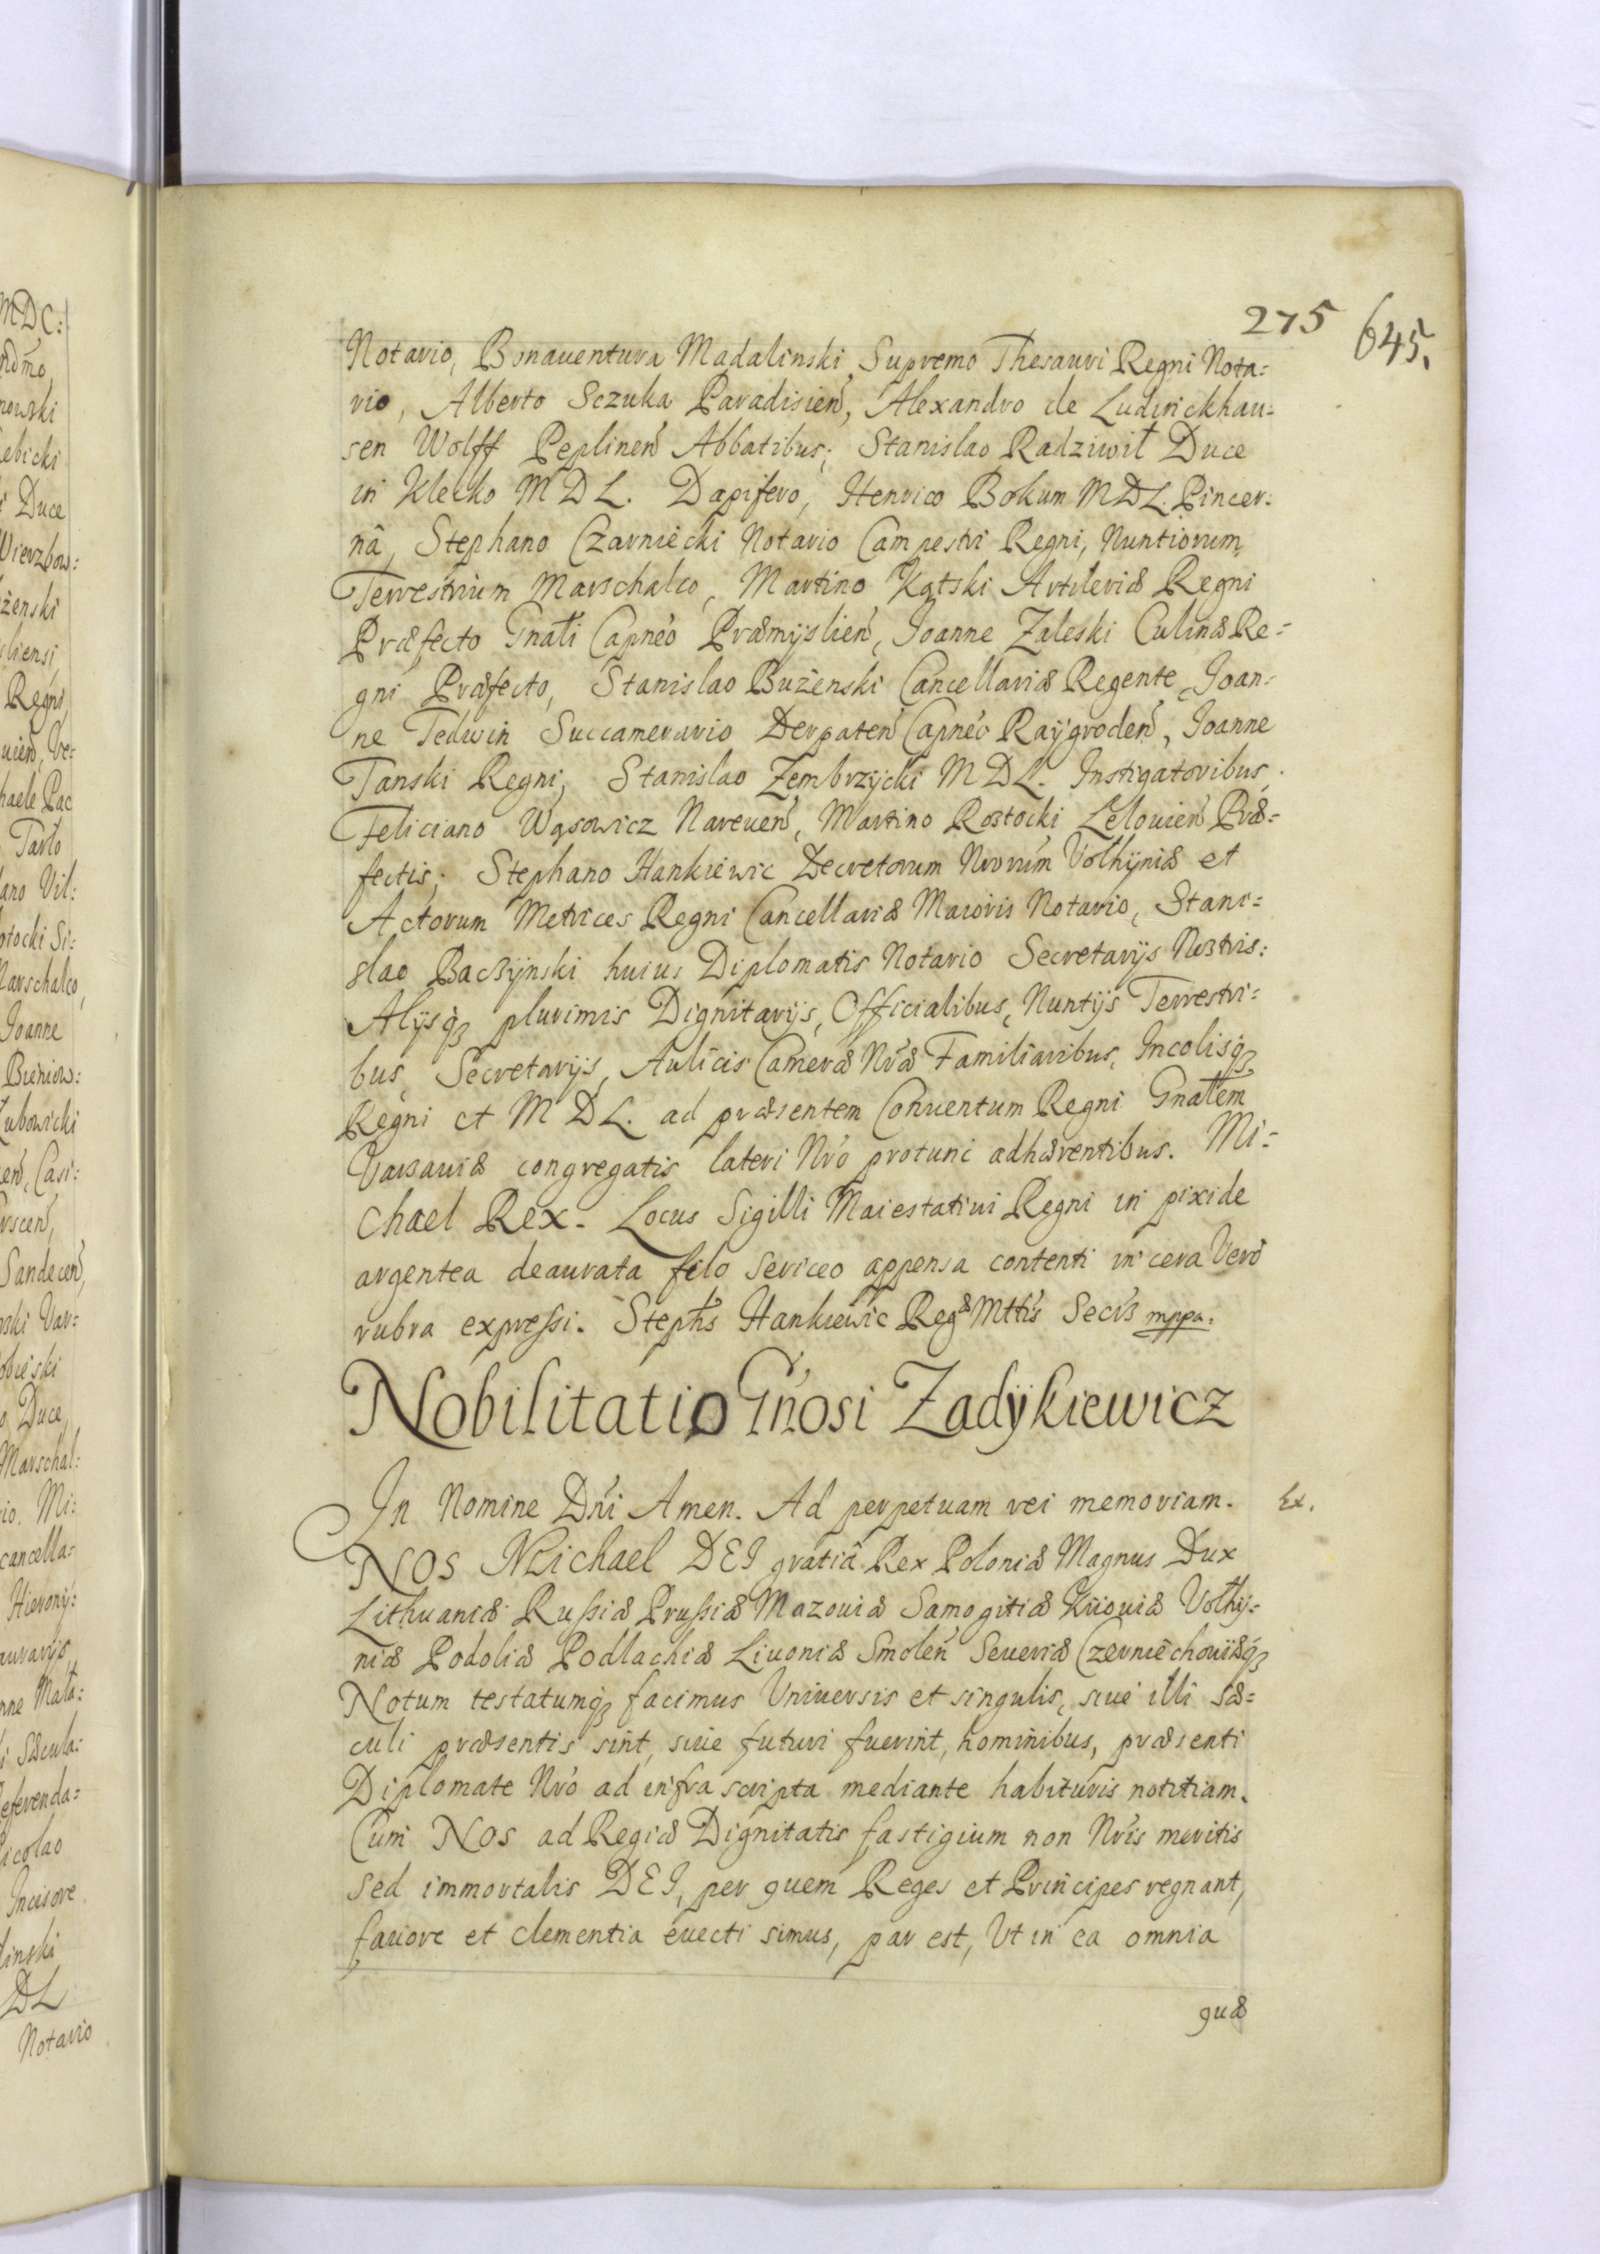 275 645.
Notario, Bonauentura Madalinski Supremo Thesauri Regni Nota:
rio, Alberto Sczuka Paradisien̄, Alexandro de Ludinckhau:
sen Wolff Peplinen̄ Abbatibus; Stanislao Radziwił Duce
in Klecko MDL. Dapifero, Henrico Bokum MDL. Pincer:
nâ, Stephano Czarniecki Notario Campestri Regni, Nuntiorum
Terrestrium Marschalco, Martino Kątski Artileriæ Regni
Præfecto Gnałi Capnéo Præmÿslien̄, Joanne Zaleski Culinæ Re:
gni Præfecto, Stanislao Bużenski Cancellariæ Regente, Joan:
ne Tedwin Succamerario Derpaten̄ Capnéo Raÿgroden̄, Joanne
Tanski Regni, Stanislao Zembrzÿcki MDL. Instigatoribus,
Feliciano Wąsowicz Nareuen̄, Martino Rostocki Lelouien̄ Præ:
fectis; Stephano Hankiewic Decretorum Nrorum Volhÿniæ et
Actorum Metrices Regni Cancellariæ Maioris Notario, Stani:
slao Baczÿnski huius Diplomatis Notario Secretarÿs Nostris:
Alÿsq́ꝫ plurimis Dignitarÿs, Officialibus, Nuntÿs Terrestri:
bus Secretarÿs, Aulicis Cameræ Nræ Familiaribus, Incolisq́ꝫ
Regni et MDL. ad præsentem Conuentum Regni Gnałem
Varsauiæ congregatis lateri Nro protunc adhærentibus. Mi:
chael Rex. Locus Sigilli Maiestatiui Regni in pixide
argentea deaurata filo sericeo appensa contenti in cera Verò
rubra expreſsi. Stephs Hankiewic Regæ Mttis Secrs mppa.
Nobilitatio Gńosi Zadÿkiewicz
In Nomine Dńi Amen. Ad perpetuam rei memoriam. Ex.
NOS Michael DEI gratiâ Rex Poloniæ Magnus Dux
Lithuaniæ Ruſsiæ Pruſsiæ Mazouiæ Samogitiæ Kiiouiæ Volhÿ:
niæ Podoliæ Podlachiæ Liuoniæ Smolen̄ Seueriæ Czerniechouiæq́ꝫ
Notum testatumq́ꝫ facimus Vniuersis et singulis, siue illi sæ:
culi præsentis sint, siue futuri fuerint, hominibus, præsenti
Diplomate Nro ad infra scripta mediante habituris notitiam.
Cum NOS ad Regiæ Dignitatis fastigium non Nris meritis
sed immortalis DEI, per quem Reges et Principes regnant,
fauore et clementia euecti simus, par est, Vt in ea omnia
quæ